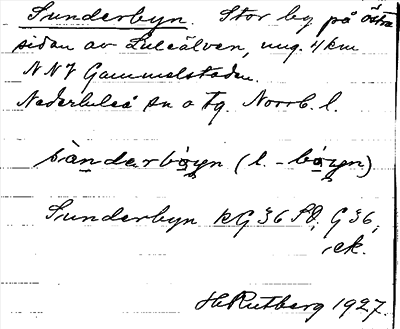 Sunderbyn. Stor by på östra
sidan av Luleälven, ung. 4 km
NNV Gammelstaden.
Nederluleå sn o tg. Norrb. l.
sànderbǫyn (l. -bǫyn)
Sunderbyn RG 36 SO; G 36,
ek.
H Rutberg 1927.